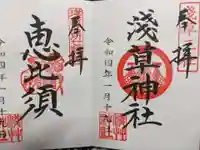 奉拝
淺草神社
令和四年一月十九日
奉拝
恵比須
令和四年一月十九日